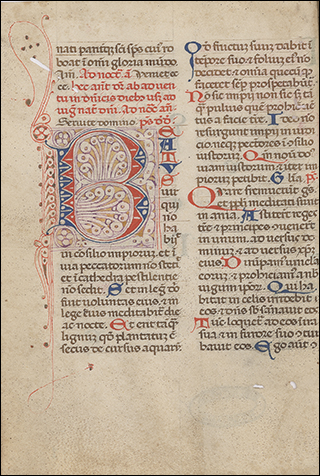 nat pant̃ sci sp̃s cū ro
boat i om̃i gloria ı̃ mūdo.
Am̃. Ad noct̃. añ. Venite ÷c̃.
Hec añt dr̃ ab ad uen
tu in dñicis dieb; usq; ad
.lxx. ad noct̃. añ.
Seruite domino. ps. dd
BEATUS
uir
qui
no
ha
bijt
in cōsilio impioruz. et ı̃
uia peccatorum nō stetit
et ı̃ cathedra pestilentie
nō sedit. Set in lege dñi
fuit uoluntas eius. & in
lege eius meditabit die
ac nocte. Et erit tāq̃
lignuz qđ plantatū ē
secus decursus aquarū.
Qđ fructuz suuz dabit ı̃
tēpore suo & foliuz eí nō
decidet & om̃ia quecūq; fa
ciet sep̃ prosperabūt.
Nō sic impij nō sic sed tā
q̃ puluis quē prohicit uē
tus a facie tr̃e. Ideo nō
resurgunt impij in iudi
cio neq; peccatores ı̃ ɔsilio
iustoruz. Qm̃ nouit do
minus uiam iustoruz & iter im
pioruz peribit. Gl̃a. p̃s.
Quare fremuerūt gētes
& ppl̃i meditati sunt
inania. Astiterūt reges
tr̃e & principes ɔuenerūt
in unum. aduersus do
minuz & aduersus xp̃m
eius. Dirupam̃ uincla
eoruz. & prohiciam̃ a nob̃
iuguz ipoꝝ. Qui ha
bitat in celis irridebit
eos & dñs sb̃sannabit eos
Tūc loquet̃ ad eos in ira
sua & in furore suo ɔtur
babit eos. Ego aūt ɔ